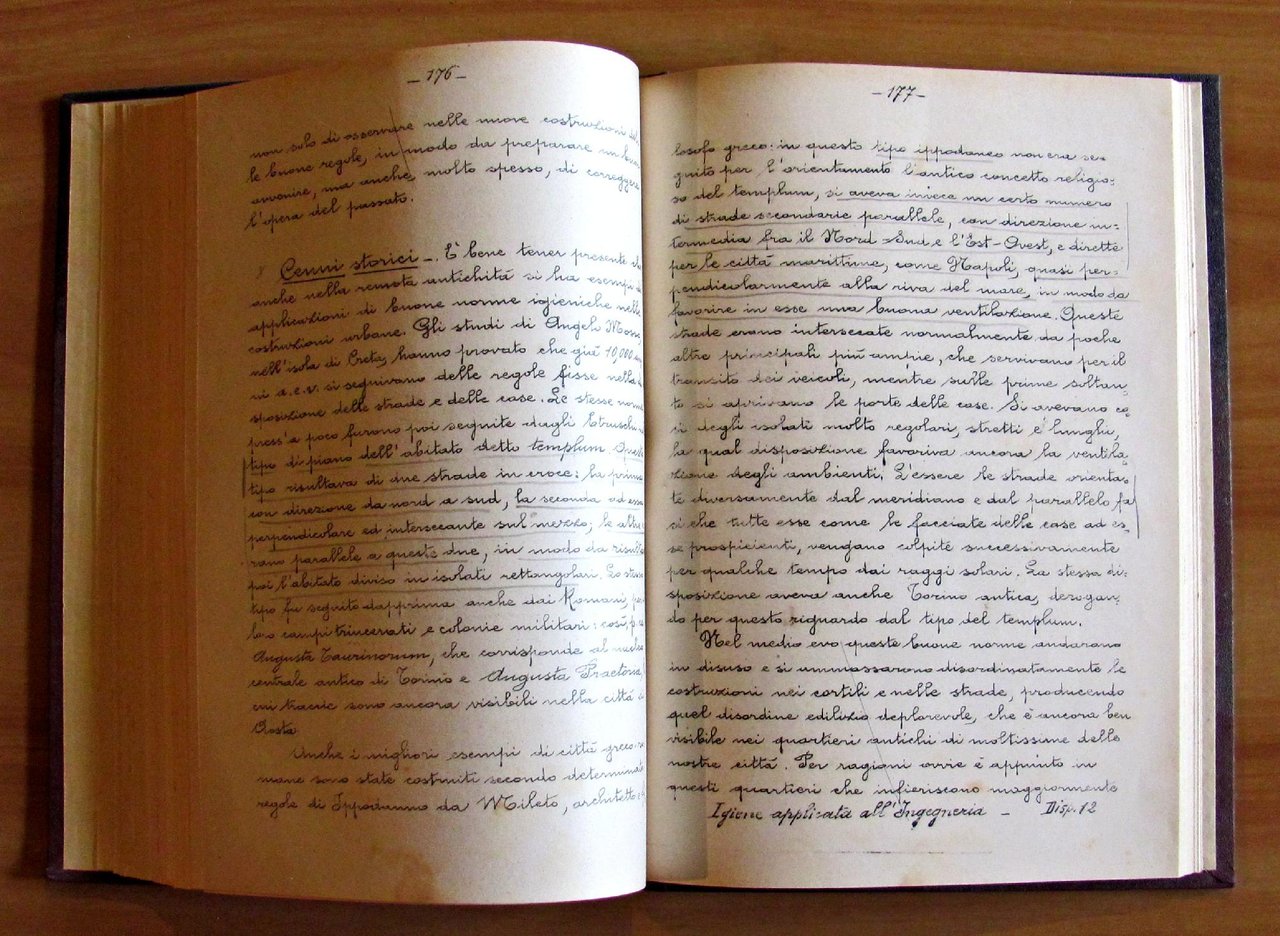 - 176 -
non solo di osservare nelle nuove costruzioni del
le buone regole, in modo da preparare un buon
avvenire, ma anche, molto spesso, di correggere
l'opera del passato.
Cenni storici - È bene tener presente che
anche nella remota antichità si ha esempi di
applicazioni di buone norme igieniche nelle
costruzioni urbane. Gli studi di Angelo Mosso
nell'isola di Creta, hanno provato che già 10,000
ni a.e.v. si seguivano delle regole fisse nella di
sposizione delle strade e delle case. Le stesse norme
press'a poco furono poi seguite dagli Etruschi nel
tipo di piano dell'abitato detto templum. Questo
tipo risultava di due strade in croce: la prima
con direzione da nord a sud, la seconda ad essa
perpendicolare ed intersecante sul mezzo; le altre
erano parallele a queste due, in modo da risultare
poi l'abitato diviso in isolati rettangolari. Lo stesso
tipo fu seguito dapprima anche dai Romani, pei
loro campi trincerati e colonie militari: così, p. es.
Augusta Taurinorum, che corrisponde al nucleo
centrale antico di Torino e Augusta Praetoria,
cui traccie sono ancora visibili nella città di
Aosta.
Anche i migliori esempi di città greco-ro
mane sono state costruiti secondo determinate
regole di Ippodamno da Mileto, architetto e fi
- 177 -
losofo greco: in questo tipo ippodaneo non era se=
guito per l'orientamento l'antico concetto religio=
so del templum, si aveva invece un certo numero
di strade secondarie parallele, con direzione in=
termedia fra il Nord-Sud e l'Est-Ovest, e dirette
per le città marittime, come Napoli, quasi per=
pendicolarmente alla riva del mare, in modo da
favorire in esse una buona ventilazione. Queste
strade erano intersecate normalmente da poche
altre principali più ampie, che servivano per il
transito dei veicoli, mentre sulle prime soltan=
to si aprivano le porte delle case. Si avevano co=
sì degli isolati molto regolari, stretti e lunghi,
la qual disposizione favoriva ancora la ventila=
zione degli ambienti. L'essere le strade orienta=
te diversamente dal meridiano e dal parallelo fa
sì che tutte esse come le facciate delle case ad es=
se prospicienti, vengano colpite successivamente
per qualche tempo dai raggi solari. La stessa di=
sposizione aveva anche Torino antica, derogan=
do per questo riguardo dal tipo del templum.
Nel medio evo queste buone norme andarono
in disuso e si ammassarono disordinatamente le
costruzioni nei cortili e nelle strade, producendo
quel disordine edilizio deplorevole, che è ancora ben
visibile nei quartieri antichi di moltissime delle
nostre città. Per ragioni ovvie è appunto in
questi quartieri che infieriscono maggiormente
Igiene applicata all'Ingegneria - Disp. 12